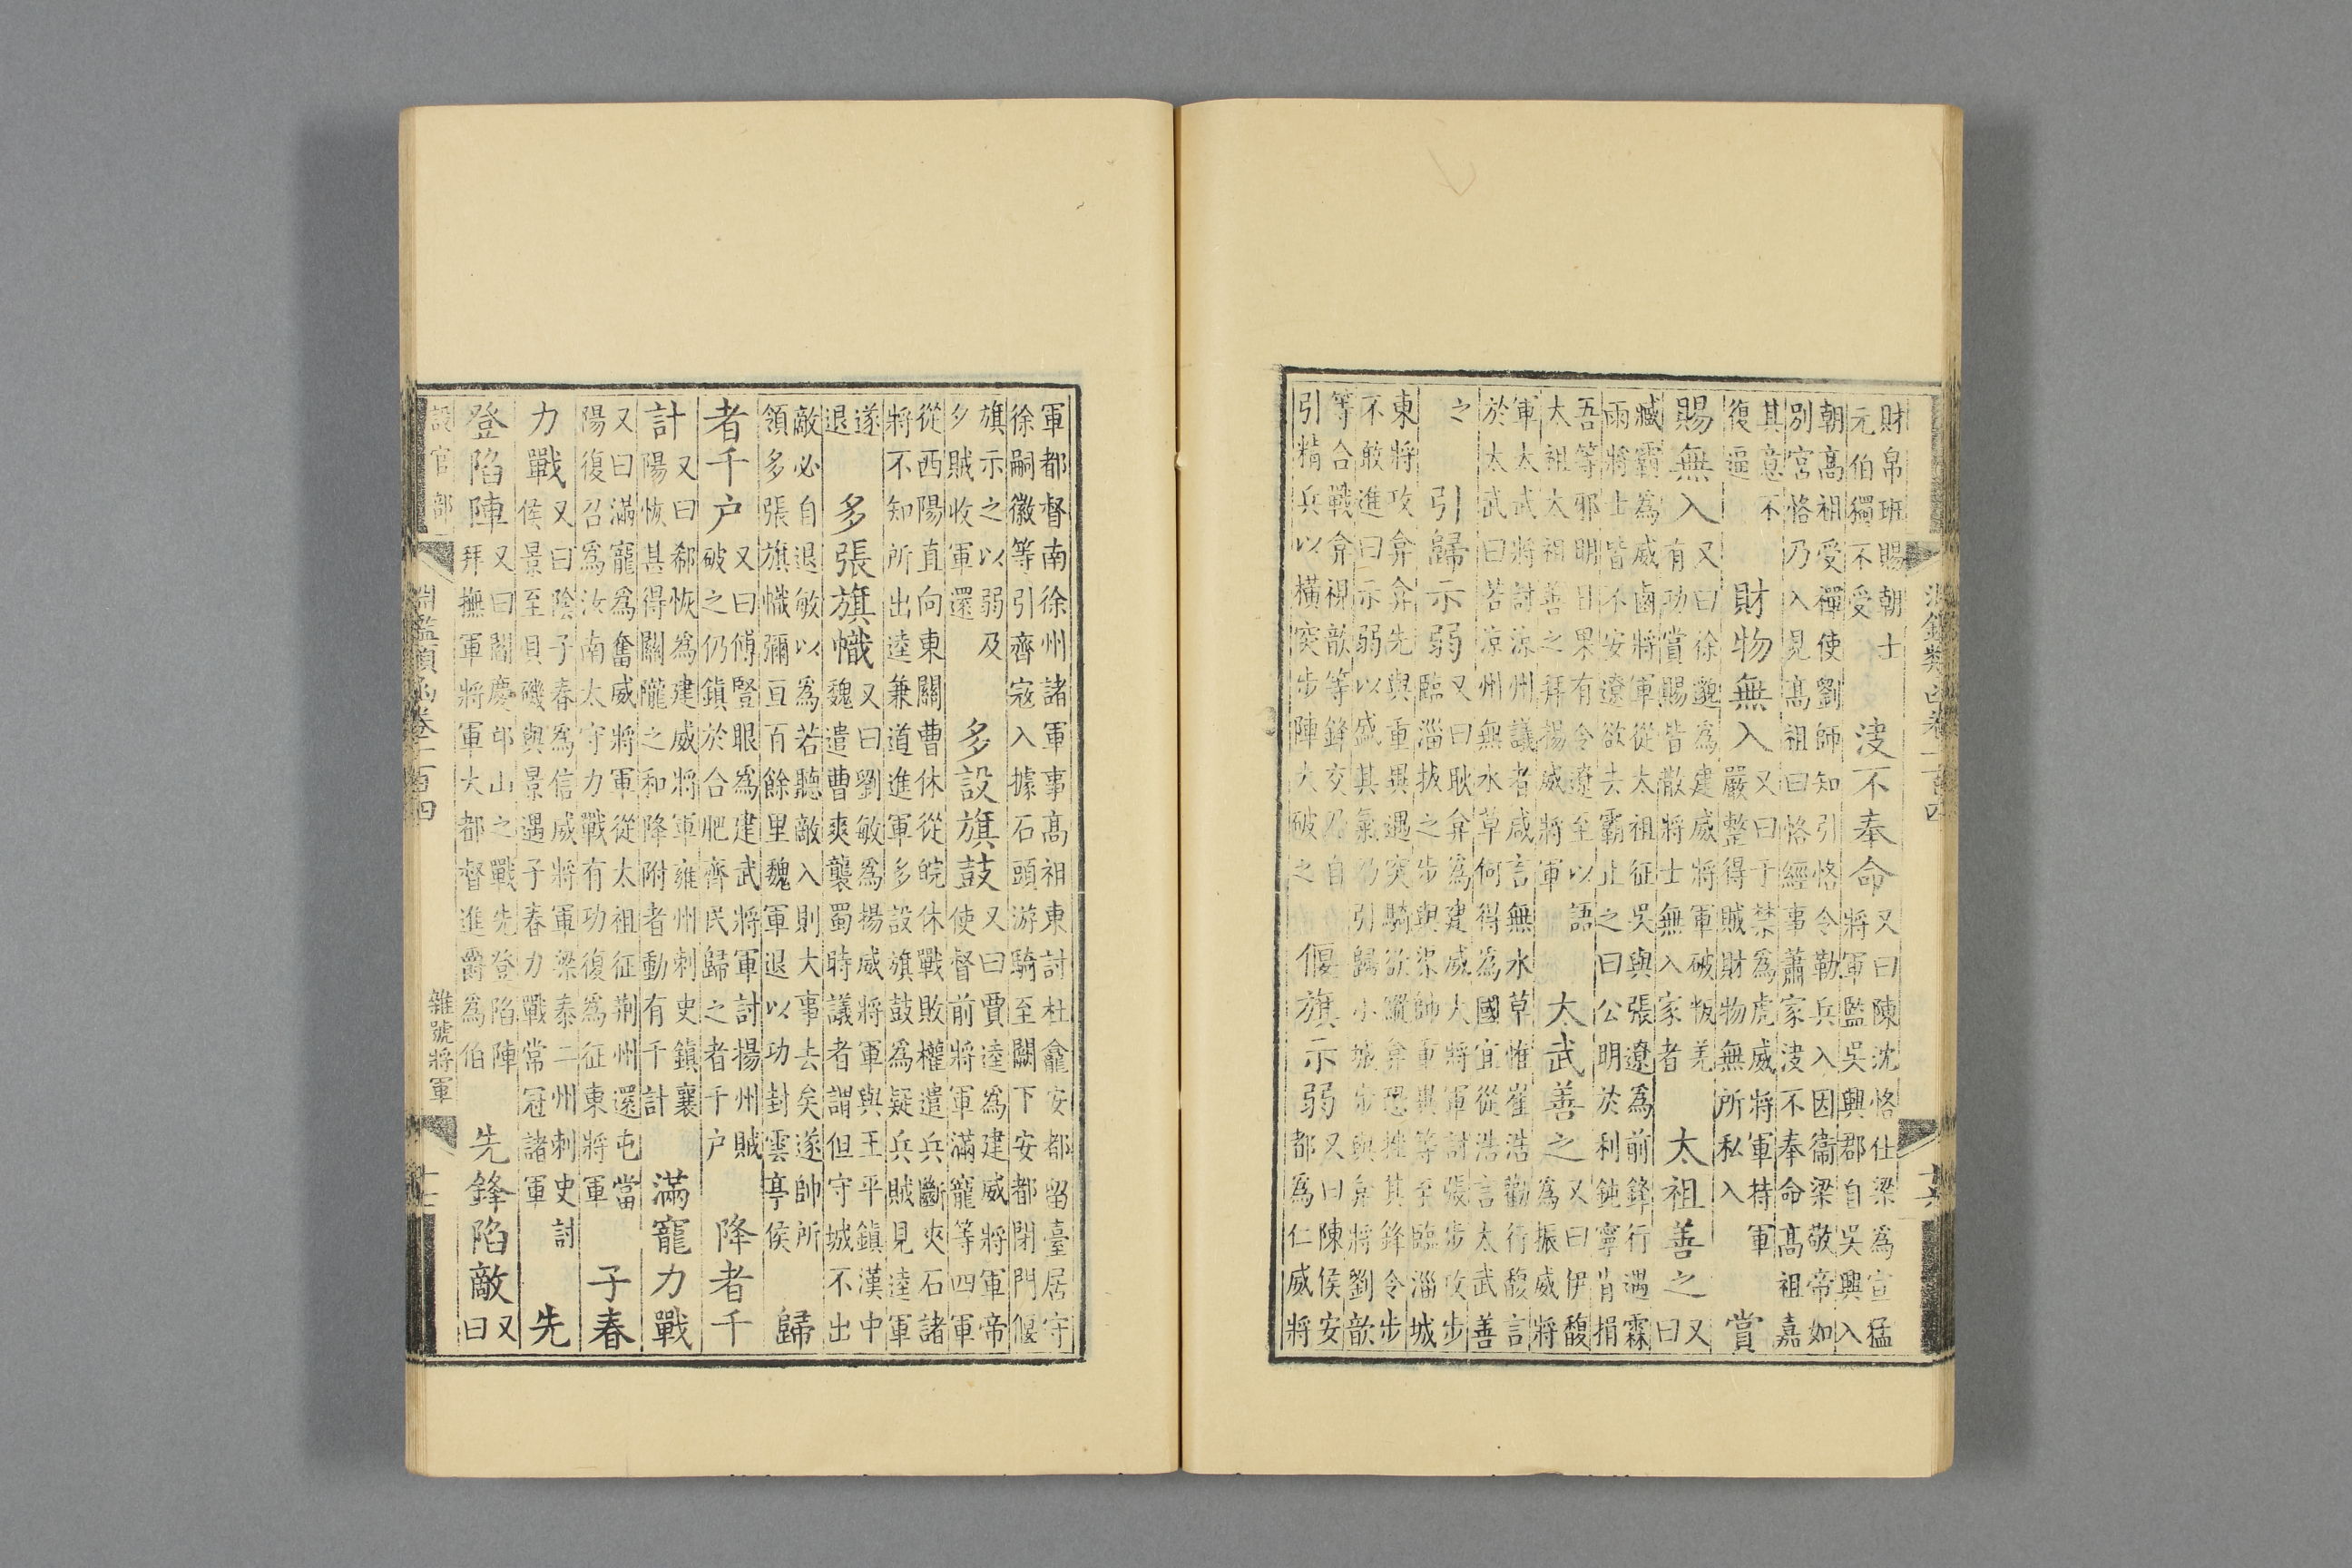 財帛班賜朝士
元伯獨不受
没不奉命
又曰陳沈恪仕梁為宣猛
將軍監吳興郡自吳興入
朝高祖受禪使劉師知引恪令勒兵入因衞梁敬帝如
別宮恪乃入見高祖曰恪經事蕭家没不奉命高祖嘉
其意不
復逼
財物無入
又曰于禁為虎威將軍持軍
嚴整得賊財物無所私入
賞
賜無入
又曰徐邈為建威將軍破叛羌
有功賞賜皆散將士無入家者
太祖善之
又
曰
臧霸為威鹵將軍從太祖征吳與張遼為前鋒行遇霖
雨將士皆不安遼欲去霸止之曰公明於利鈍寧肯捐
吾等邪明日果有令遼至以語
太祖太祖善之拜揚威將軍
太武善之
又曰伊馥
為振威將
軍太武將討涼州議者咸言無水草惟崔浩勸行馥言
於太武曰若涼州無水草何得為國宜從浩言太武善
之
引歸示弱
又曰耿弇為建威大將軍討張步攻步
臨淄拔之步與梁帥重異等至臨淄城
東將攻弇弇先與重異遇突騎欲縱弇恐挫其鋒令步
不敢進曰示弱以盛其氣乃引歸小城步與弇將劉歆
等合戰弇視歆等鋒交乃自
引精兵以橫突步陣大破之
偃旗示弱
又曰陳侯安
都為仁威將
軍都督南徐州諸軍事高祖東討杜龕安都留臺居守
徐嗣徽等引齊寇入據石頭游騎至闕下安都閉門偃
旗示之以弱及
夕賊收軍還
多設旗鼓
又曰賈逵為建威將軍帝
使督前將軍滿寵等四軍
從西陽直向東關曹休從皖休戰敗權遣兵斷夾石諸
將不知所出逵兼道進軍多設旗鼓為疑兵賊見逵軍
遂
退
多張旗幟
又曰劉敏為揚威將軍與王平鎮漢中
魏遣曹爽襲蜀時議者謂但守城不出
敵必自退敏以為若聽敵入則大事去矣遂帥所
領多張旗幟彌亘百餘里魏軍退以功封雲亭侯
歸
者千户
又曰傅豎眼為建武將軍討揚州賊
破之仍鎮於合肥齊民歸之者千户
降者千
計
又曰郗恢為建威將軍雍州刺史鎮襄
陽恢其得關隴之和降附者動有千計
滿寵力戰
又曰滿寵為奮威將軍從太祖征荆州還屯當
陽復召為汝南太守力戰有功復為征東將軍
子春
力戰
又曰陰子春為信威將軍梁秦二州刺史討
侯景至貝磯與景遇子春力戰常冠諸軍
先
登陷陣
又曰閻慶邙山之戰先登陷陣
拜撫軍將軍大都督進爵為伯
先鋒陷敵
又
曰
設官部
淵鑑類函卷一百四
雜號將軍